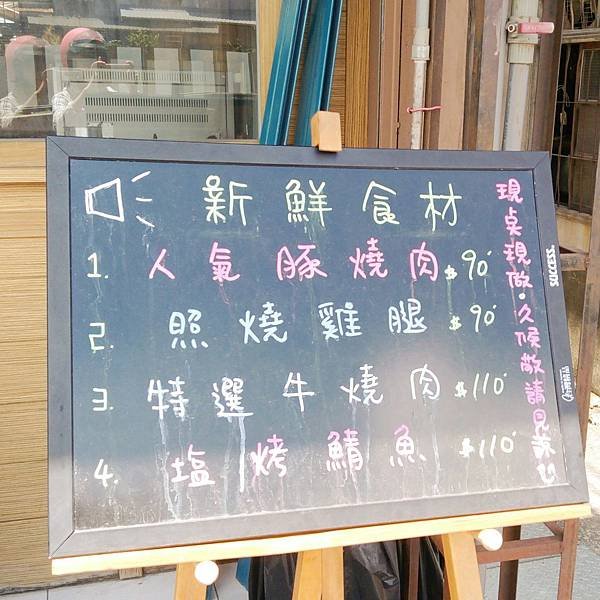 新鮮食材
1. 人氣豚燒肉 $90
2. 照燒雞腿 $90
3. 特選牛燒肉 $110
4. 塩烤鯖魚 $110
現桌現做。久候敬請見諒
SUCCESS